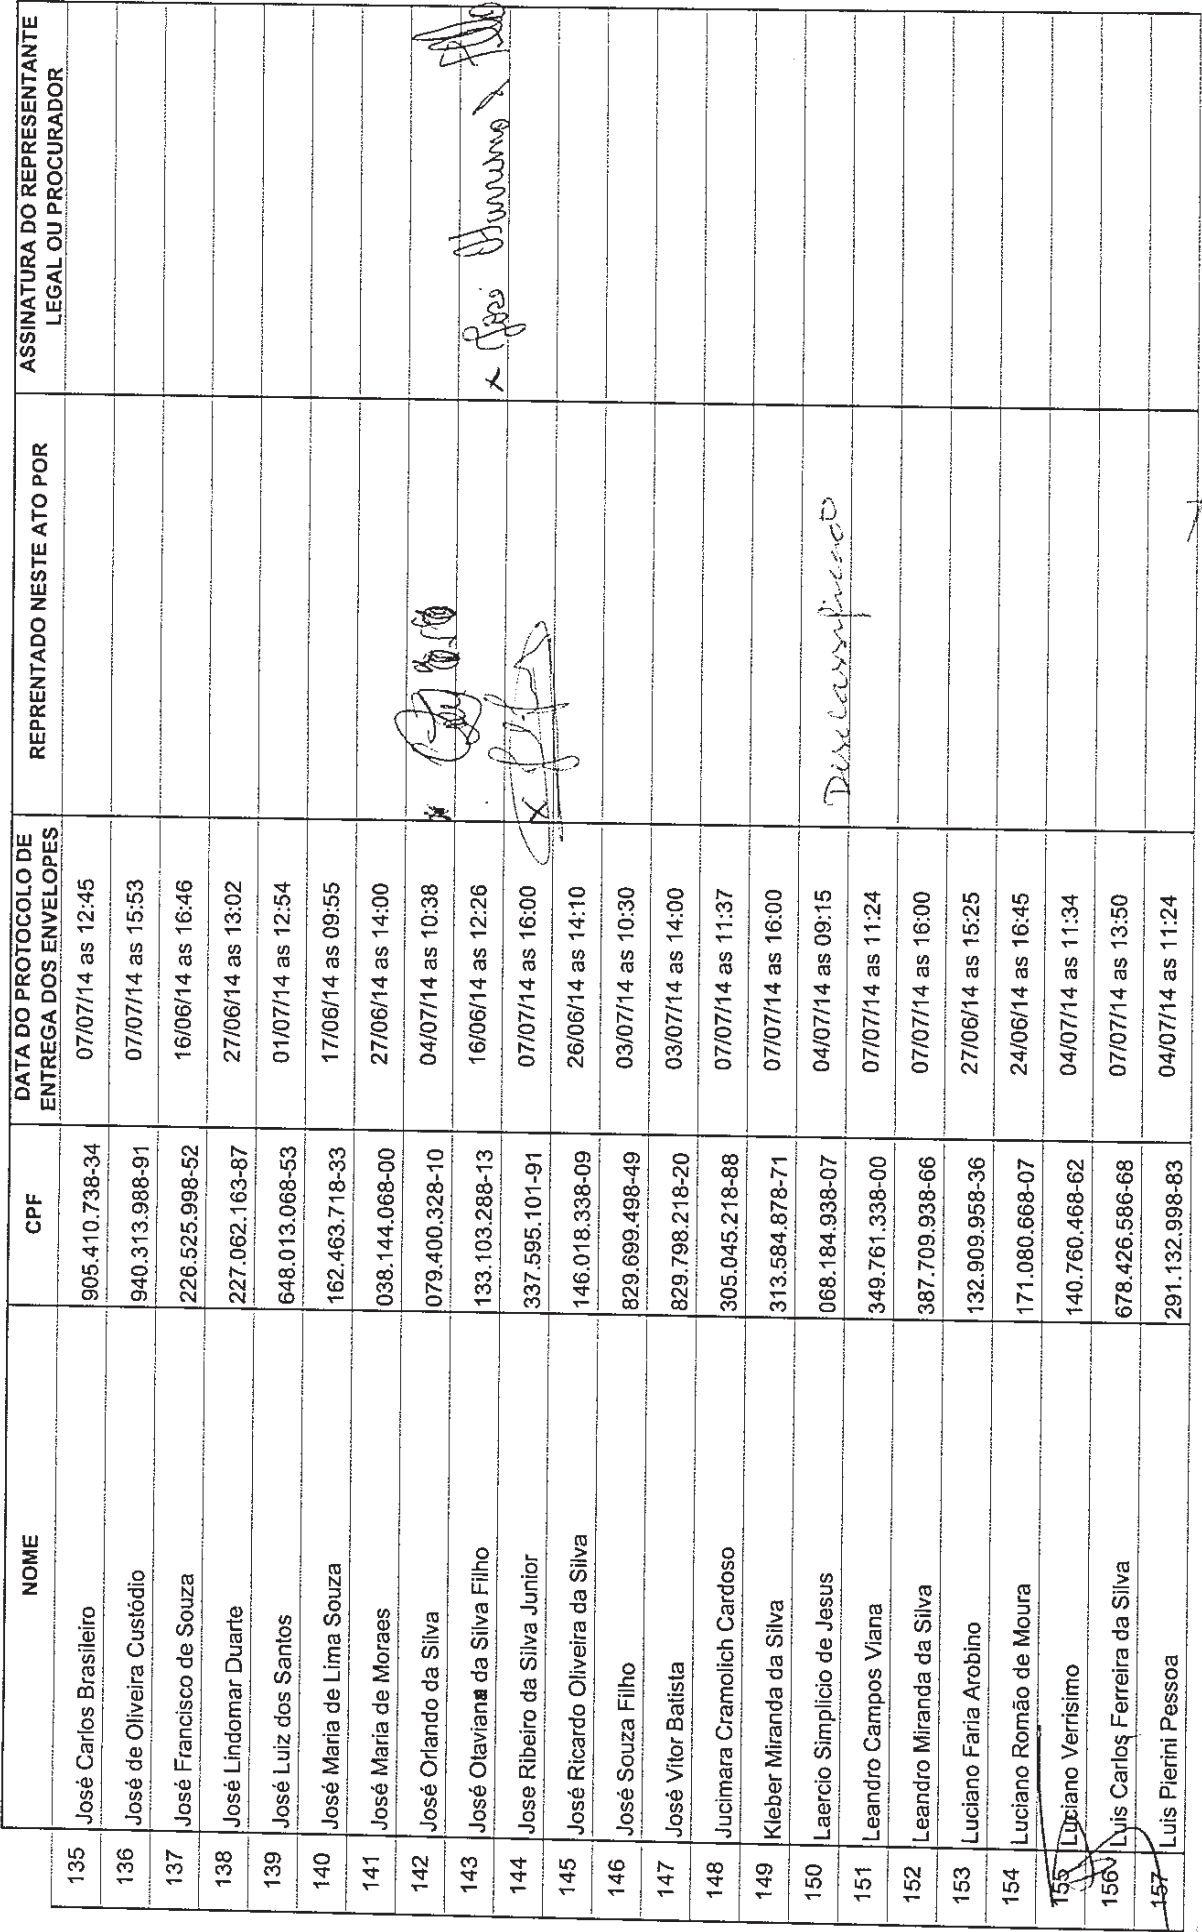 NOME CPF DATA DO PROTOCOLO DE ENTREGA DOS ENVELOPES REPRENTADO NESTE ATO POR ASSINATURA DO REPRESENTANTE LEGAL OU PROCURADOR
135 José Carlos Brasileiro 905.410.738-34 07/07/14 as 12:45
136 José de Oliveira Custódio 940.313.988-91 07/07/14 as 15:53
137 José Francisco de Souza 226.525.998-52 16/06/14 as 16:46
138 José Lindomar Duarte 227.062.163-87 27/06/14 as 13:02
139 José Luiz dos Santos 648.013.068-53 01/07/14 as 12:54
140 José Maria de Lima Souza 162.463.718-33 17/06/14 as 09:55
141 José Maria de Moraes 038.144.068-00 27/06/14 as 14:00
142 José Orlando da Silva 079.400.328-10 04/07/14 as 10:38 x
143 José Otaviano da Silva Filho 133.103.288-13 16/06/14 as 12:26 x José
144 Jose Ribeiro da Silva Junior 337.595.101-91 07/07/14 as 16:00 X
145 José Ricardo Oliveira da Silva 146.018.338-09 26/06/14 as 14:10
146 José Souza Filho 829.699.498-49 03/07/14 as 10:30
147 José Vitor Batista 829.798.218-20 03/07/14 as 14:00
148 Jucimara Cramolich Cardoso 305.045.218-88 07/07/14 as 11:37
149 Kleber Miranda da Silva 313.584.878-71 07/07/14 as 16:00
150 Laercio Simplício de Jesus 068.184.938-07 04/07/14 as 09:15 Desclassificado
151 Leandro Campos Viana 349.761.338-00 07/07/14 as 11:24
152 Leandro Miranda da Silva 387.709.938-66 07/07/14 as 16:00
153 Luciano Faria Arobino 132.909.958-36 27/06/14 as 15:25
154 Luciano Romão de Moura 171.080.668-07 24/06/14 as 16:45
155 Luciano Verrisimo 140.760.468-62 04/07/14 as 11:34
156 Luis Carlos Ferreira da Silva 678.426.586-68 07/07/14 as 13:50
157 Luis Pierini Pessoa 291.132.998-83 04/07/14 as 11:24